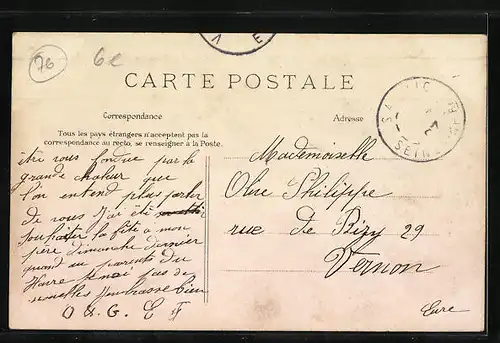 76
6e
V E
CARTE POSTALE
Correspondance
Adresse
Tous les pays étrangers n'acceptent pas la
correspondance au recto, se renseigner à la Poste.
êtes vous fondue par la
grande chaleur que
l'on entend plus parler
de vous J'ai été
souhaiter la fête a mon
père dimanche dernier
quand au parents du
Havre pas de
nouvelles bien
Mademoiselle
Olive Philippe
rue de Bizy 29
Vernon
Eure